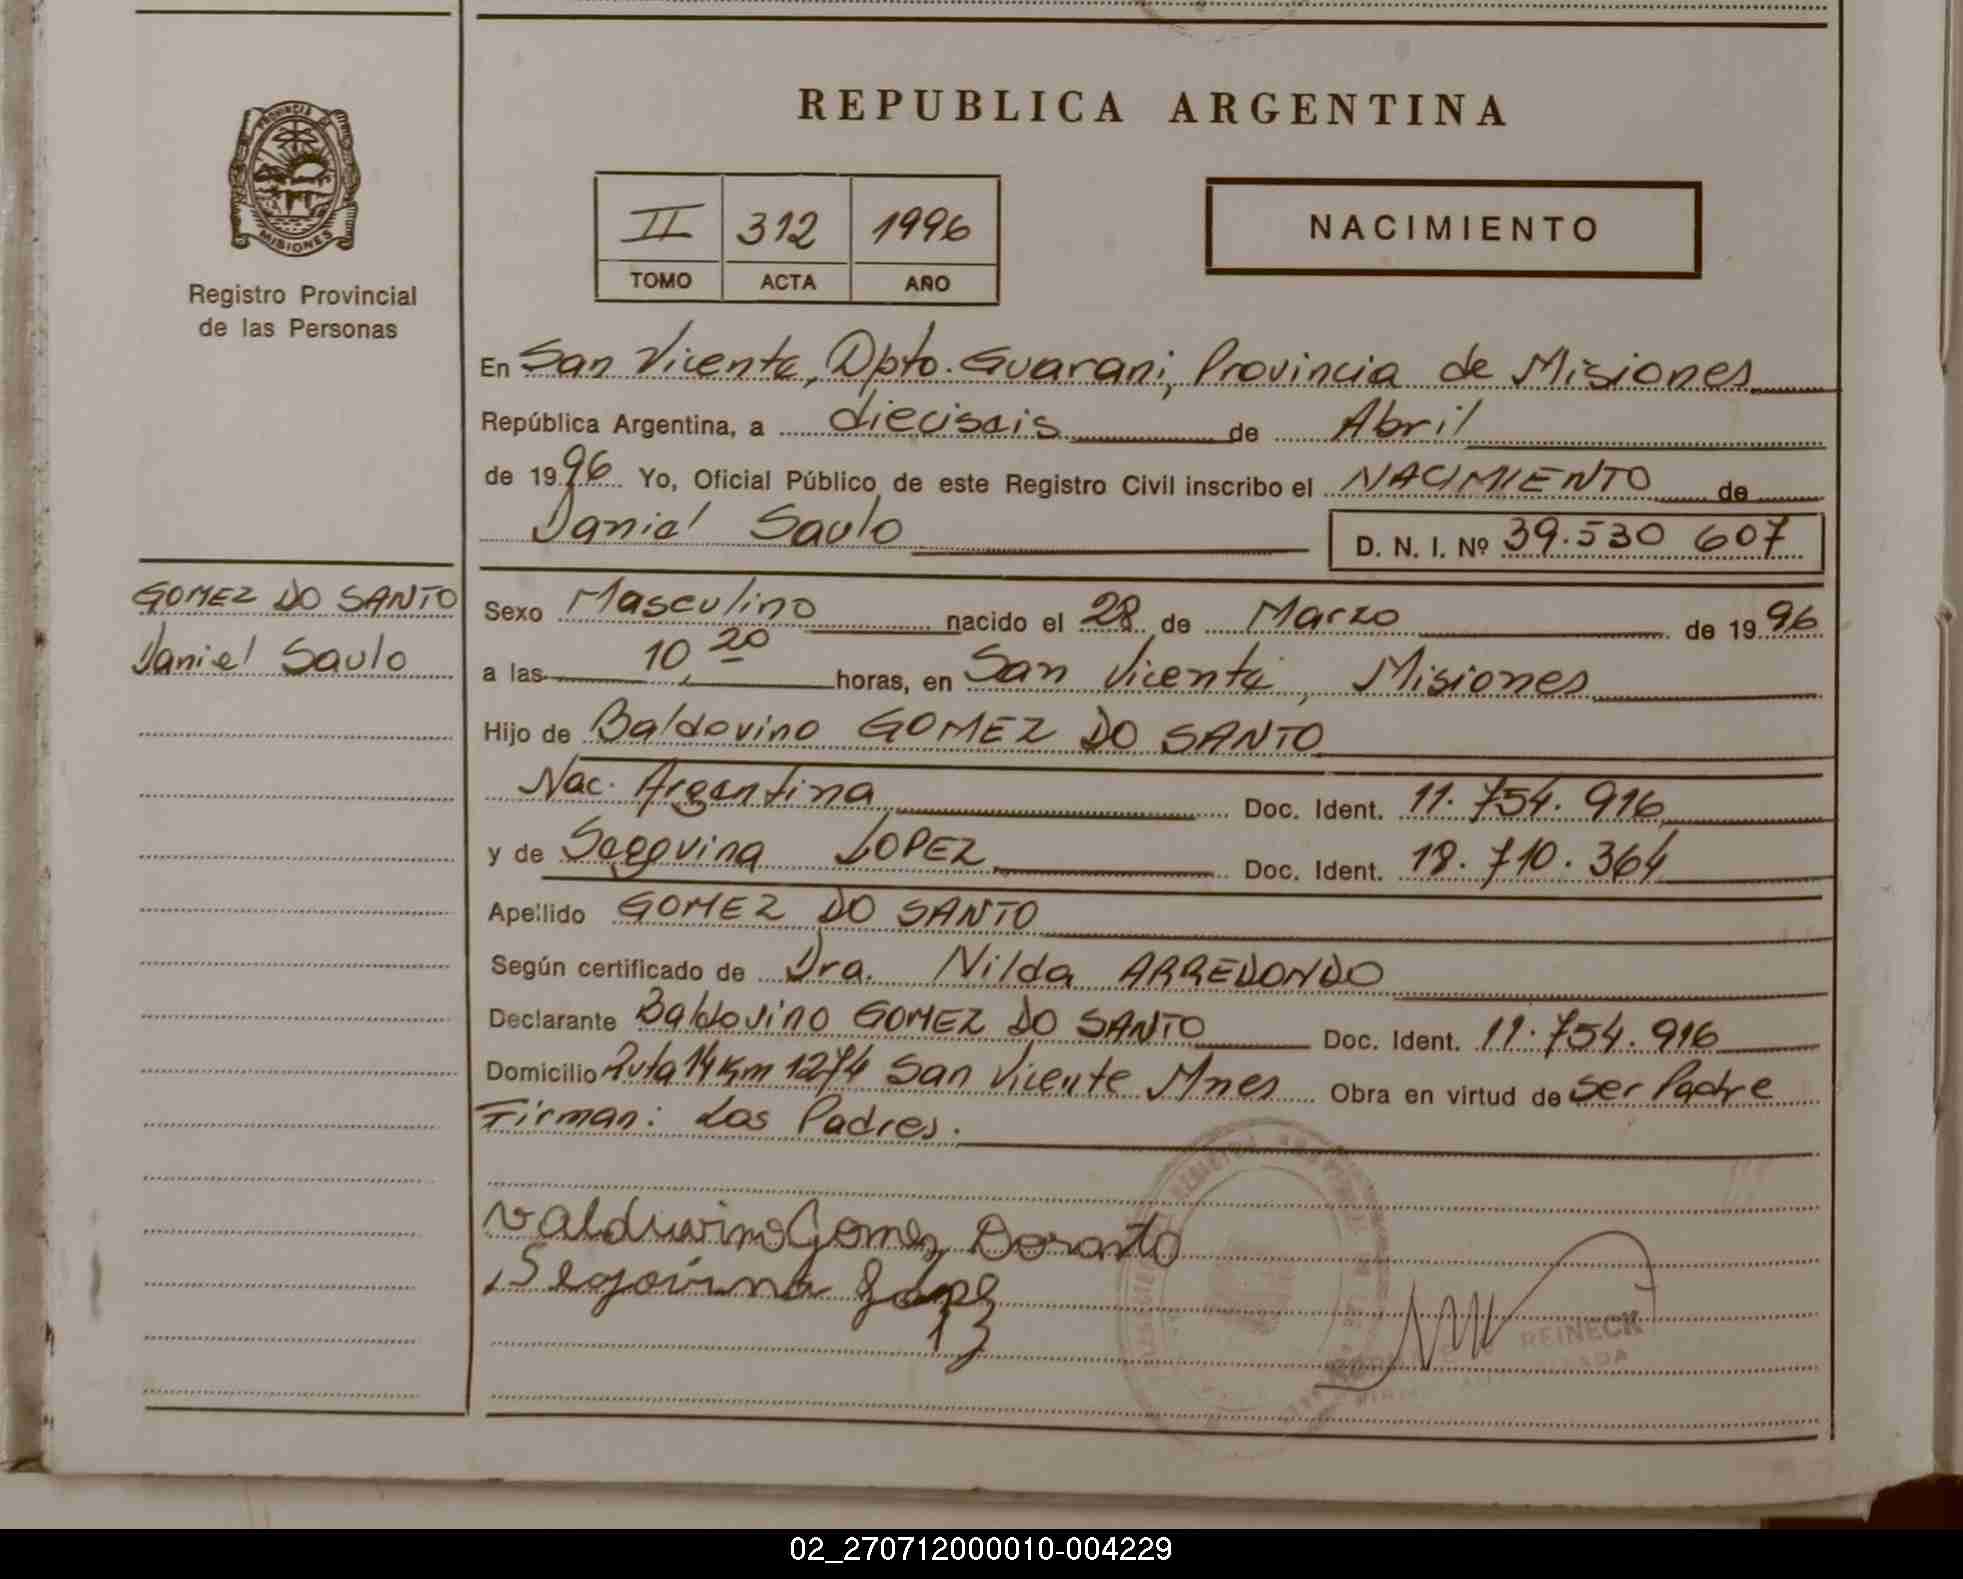 REPUBLICA ARGENTINA
PROVINCIA DE
MISIONES
Registro Provincial
de las Personas
II 312 1996
TOMO ACTA AÑO
NACIMIENTO
En San Vicente, Dpto. Guarani, Provincia de Misiones
República Argentina, a dieciseis de Abril
de 1996 Yo, Oficial Público de este Registro Civil inscribo el NACIMIENTO de
Daniel Saulo D. N. I. Nº 39.530 607
GOMEZ DO SANTO
Daniel Saulo
Sexo Masculino nacido el 28 de Marzo de 1996
a las 10,20 horas, en San Vicente, Misiones
Hijo de Baldovino GOMEZ DO SANTO
Nac. Argentina Doc. Ident. 11.754.916
y de Segovina LOPEZ Doc. Ident. 18.710.364
Apellido GOMEZ DO SANTO
Según certificado de Dra. Nilda ARREDONDO
Declarante Baldovino GOMEZ DO SANTO Doc. Ident. 11.754.916
Domicilio Ruta 14 Km 1274 San Vicente Mnes Obra en virtud de ser Padre
Firman: Los Padres.
Valduvino Gomez Dosanto
Segovina Lopez
REINECK
02_270712000010-004229